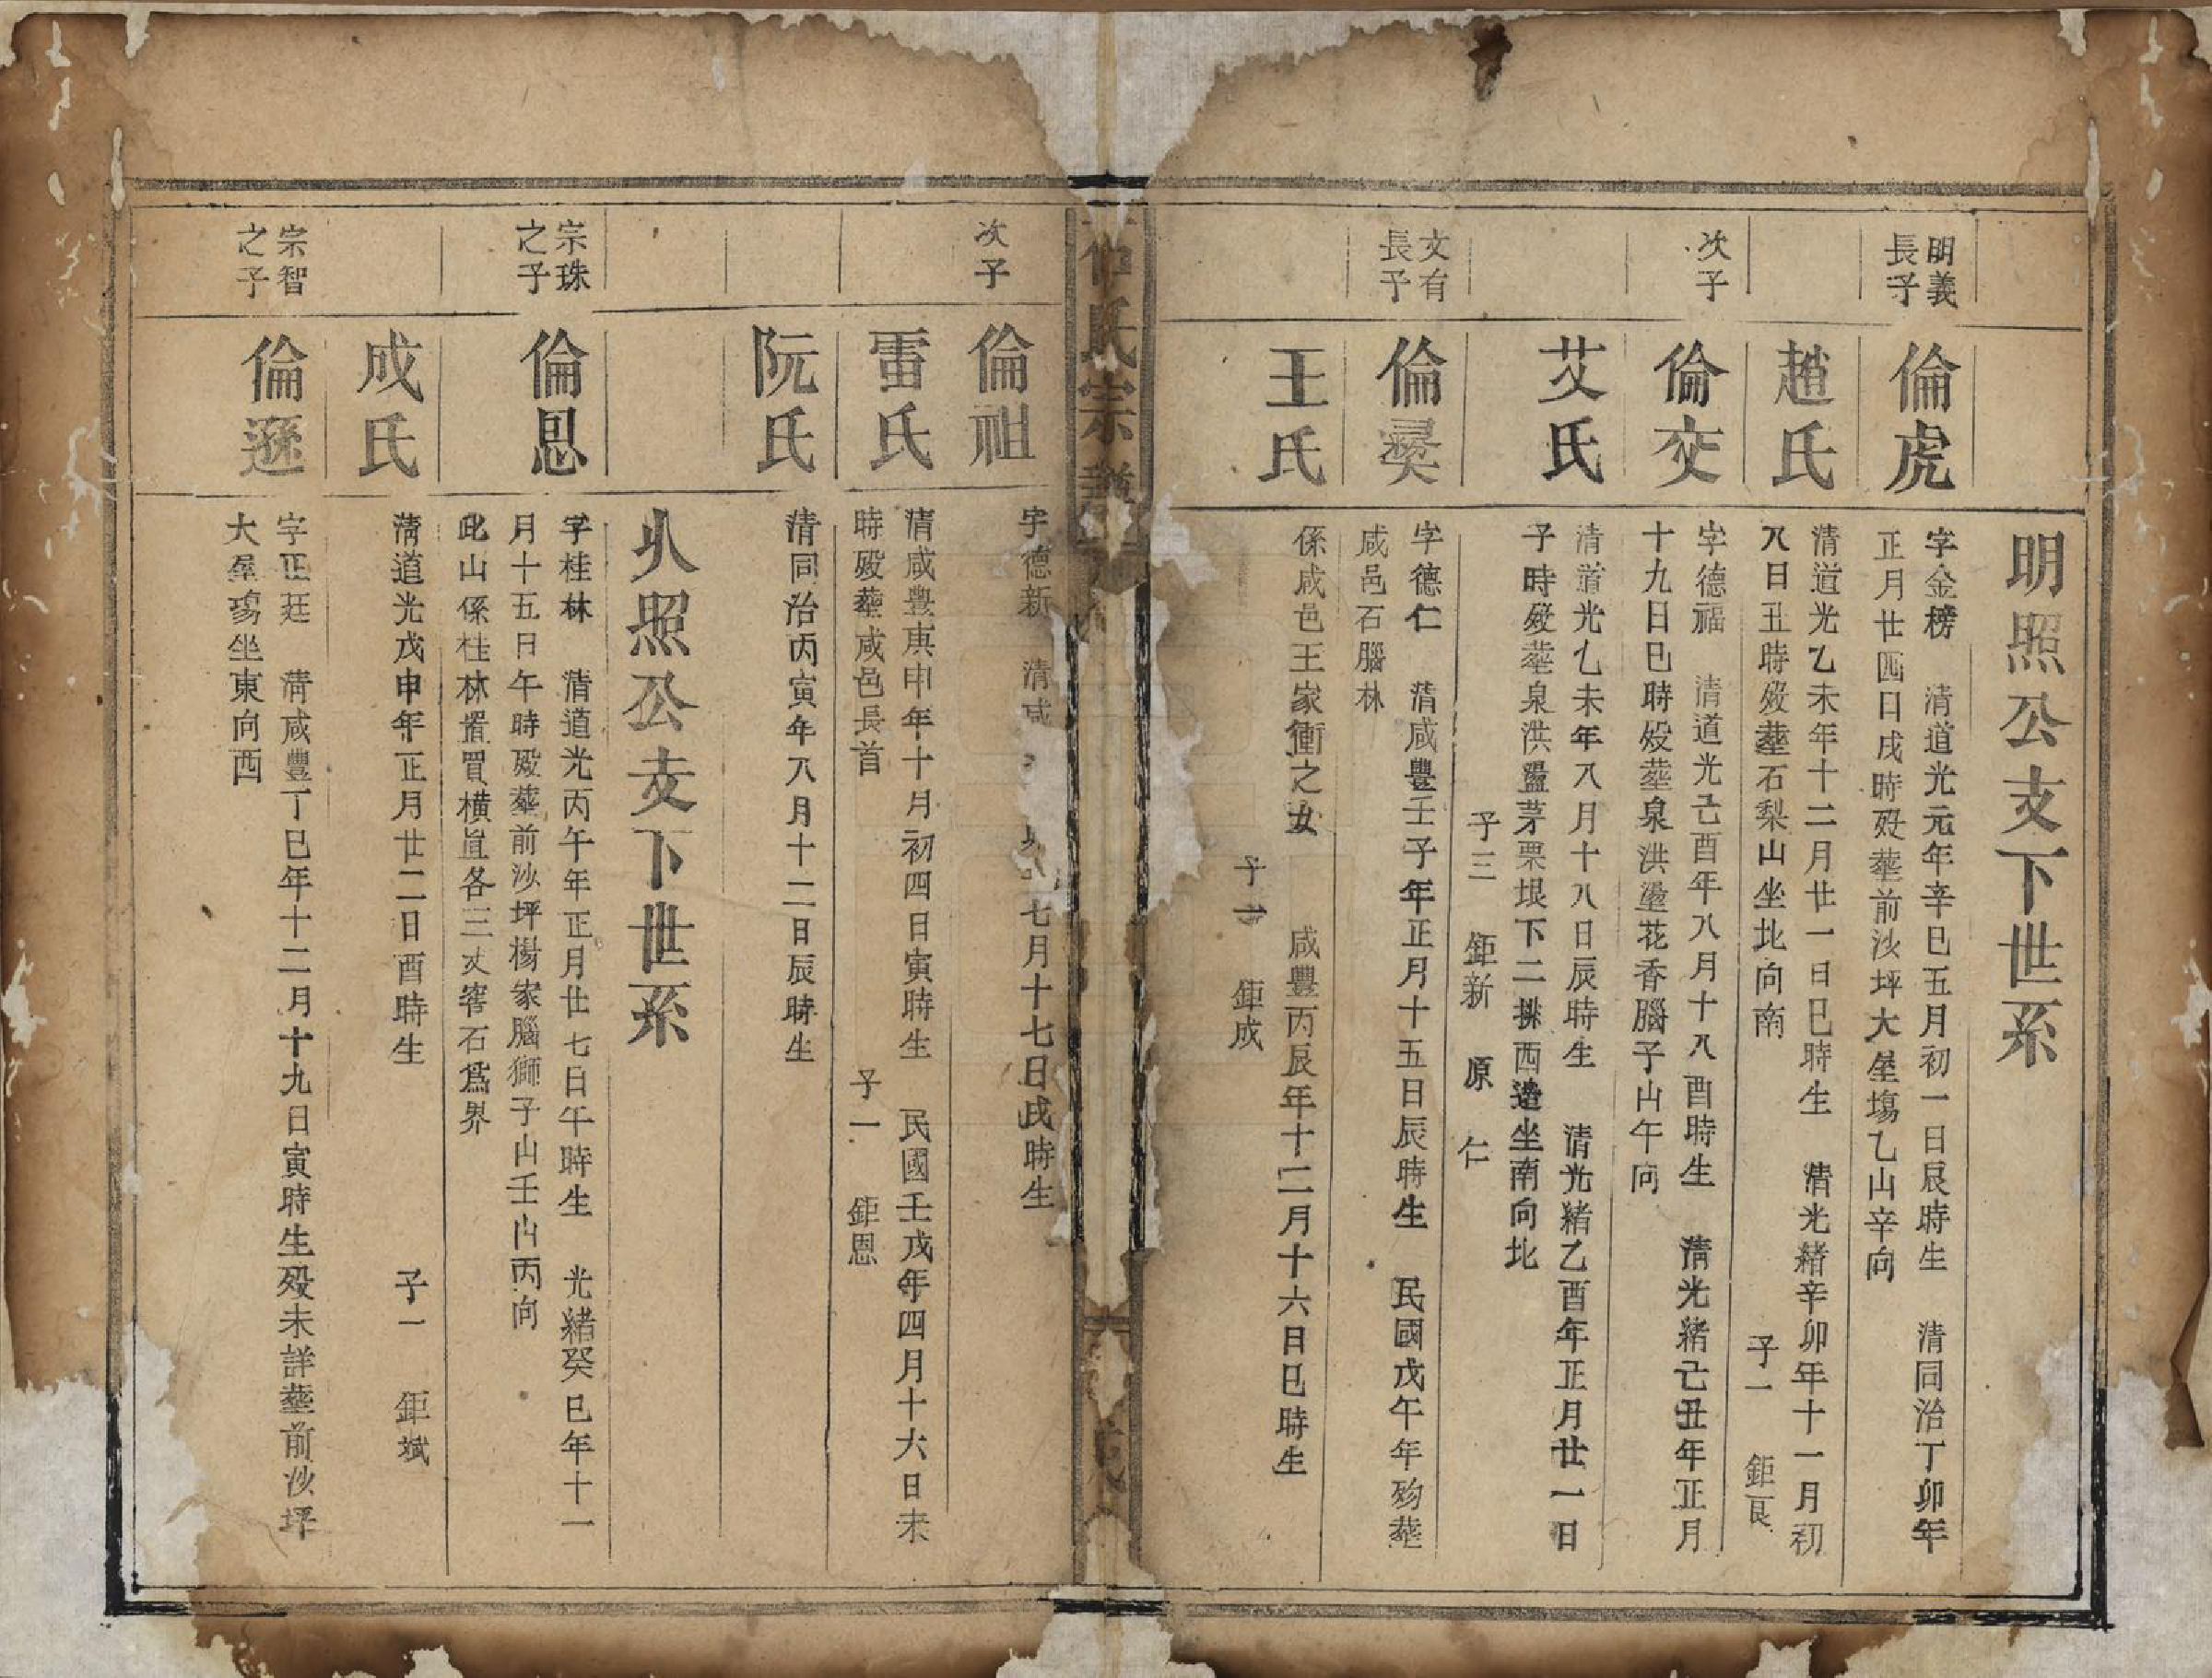 明照公支下世系
明義
長子
倫虎
字金榜　清道光元年辛巳五月初一日辰時生　清同治丁卯年
正月廿四日戌時歿葬前沙坪大屋塲乙山辛向
趙氏
清道光乙未年十二月廿一日巳時生　清光緒辛卯年十一月初
八日丑時歿葬石梨山坐北向南
子一　鉅良
次子
倫交
字德福　清道光己酉年八月十八酉時生　清光緒亡丑年正月
十九日巳時歿葬泉洪壠花香腦子山午向
艾氏
清道光乙未年八月十八日辰時生　清光緒乙酉年正月廿一日
子時歿葬泉洪壠茅栗垠下二挑西邊坐南向北
子三　鉅新　原　仁
文有
長子
倫
字德仁　清咸豐壬子年正月十五日辰時生　民國戊午年歿葬
咸邑石腦林
王氏
係咸邑王家衝之女　咸豐丙辰年十二月十六日巳時生
子　鉅成
氏宗譜
次子
倫祖
字德新　清咸　七月十七日戌時生
雷氏
清咸豐庚申年十月初四日寅時生　民國壬戌年四月十六日未
時歿葬咸邑長首
子一　鉅恩
阮氏
清同治丙寅年八月十二日辰時生
照公支下世系
宗珠
之子
倫思
字桂林　清道光丙午年正月廿七日午時生　光緒癸巳年十一
月十五日午時歿葬前沙坪楊家腦獅子山壬山丙向
此山係桂林置買橫直各三丈窖石爲界
成氏
清道光戊申年正月廿二日酉時生
子一　鉅斌
宗智
之子
倫遜
字正廷　清咸豐丁巳年十二月十九日寅時生歿未詳葬前沙坪
大屋塲坐東向西